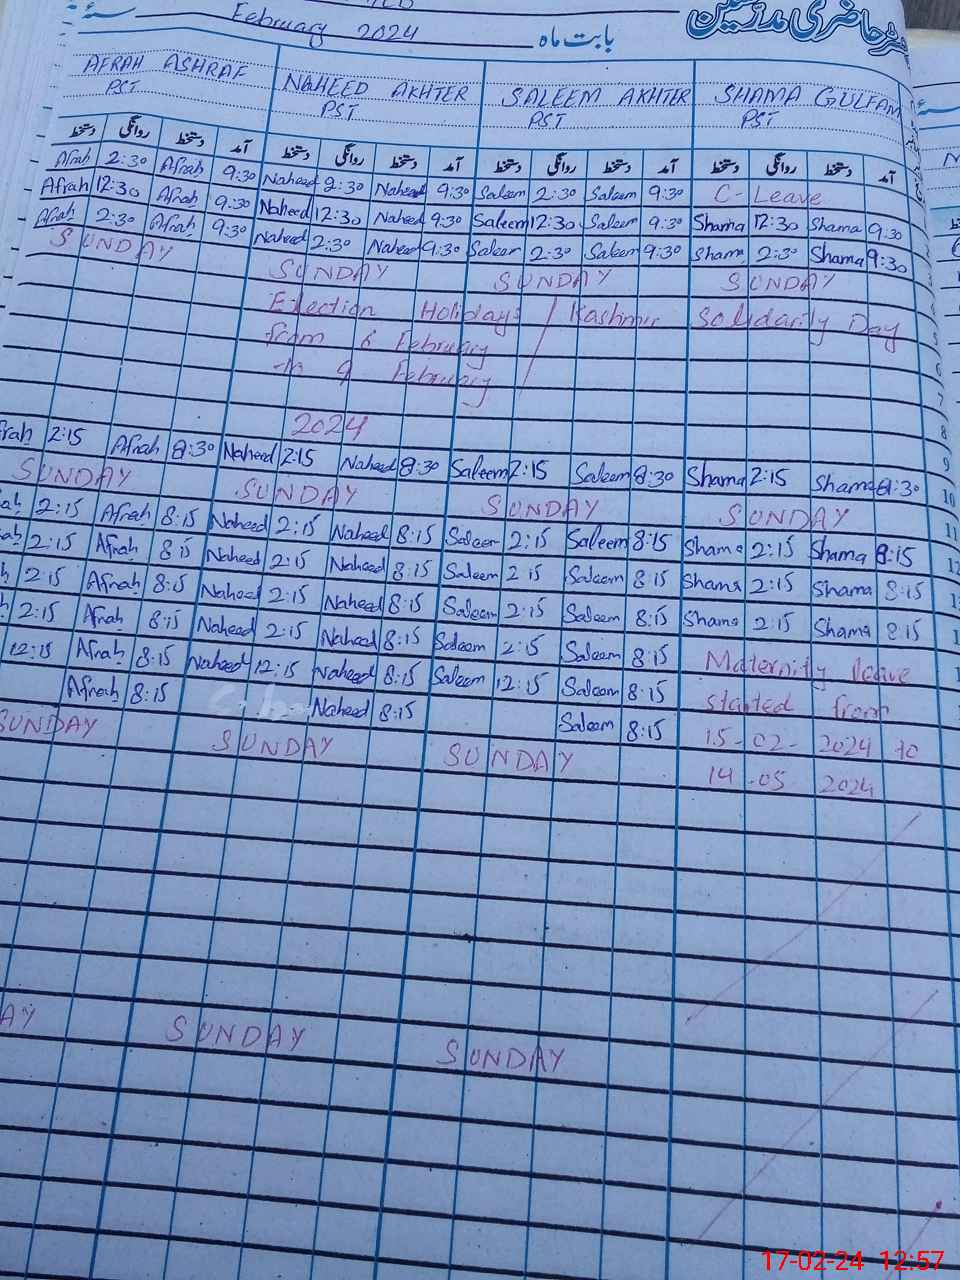 رجسٹر حاضری مدرسین
February 2024 بابت ماہ
AFRAH ASHRAF NAHEED AKHTER SALEEM AKHTER SHAMA GULFAM
PST PST PST PST
دستخط روانگی دستخط آمد دستخط روانگی دستخط آمد دستخط روانگی دستخط آمد دستخط روانگی دستخط آمد
Afrah 2:30 Afrah 9:30 Naheed 2:30 Naheed 9:30 Saleem 2:30 Saleem 9:30 C-Leave
Afrah 12:30 Afrah 9:30 Naheed 12:30 Naheed 9:30 Saleem 12:30 Saleem 9:30 Shama 12:30 Shama 9:30
Afrah 2:30 Afrah 9:30 Naheed 2:30 Naheed 9:30 Saleem 2:30 Saleem 9:30 Shama 2:30 Shama 9:30
SUNDAY SUNDAY SUNDAY SUNDAY
Election Holidays / Kashmir Solidarity Day 5
from 6 February 6
to 9 February 7
8
2024 9
Afrah 2:15 Afrah 8:30 Naheed 2:15 Naheed 8:30 Saleem 2:15 Saleem 8:30 Shama 2:15 Shama 8:30 10
SUNDAY SUNDAY SUNDAY SUNDAY 11
2:15 Afrah 8:15 Naheed 2:15 Naheed 8:15 Saleem 2:15 Saleem 8:15 Shama 2:15 Shama 8:15
2:15 Afrah 8:15 Naheed 2:15 Naheed 8:15 Saleem 2 15 Saleem 8:15 Shama 2:15 Shama 8:15
2:15 Afrah 8:15 Naheed 2:15 Naheed 8:15 Saleem 2:15 Saleem 8:15 Shama 2:15 Shama 8:15
2:15 Afrah 8:15 Naheed 2:15 Naheed 8:15 Saleem 2:15 Saleem 8:15 Maternity leave
12:15 Afrah 8:15 Naheed 12:15 Naheed 8:15 Saleem 12:15 Saleem 8:15 started from
Afrah 8:15 Naheed 8:15 Saleem 8:15 15-02-2024 to
SUNDAY SUNDAY SUNDAY 14-05 2024
SUNDAY SUNDAY
17-02-24 12:57